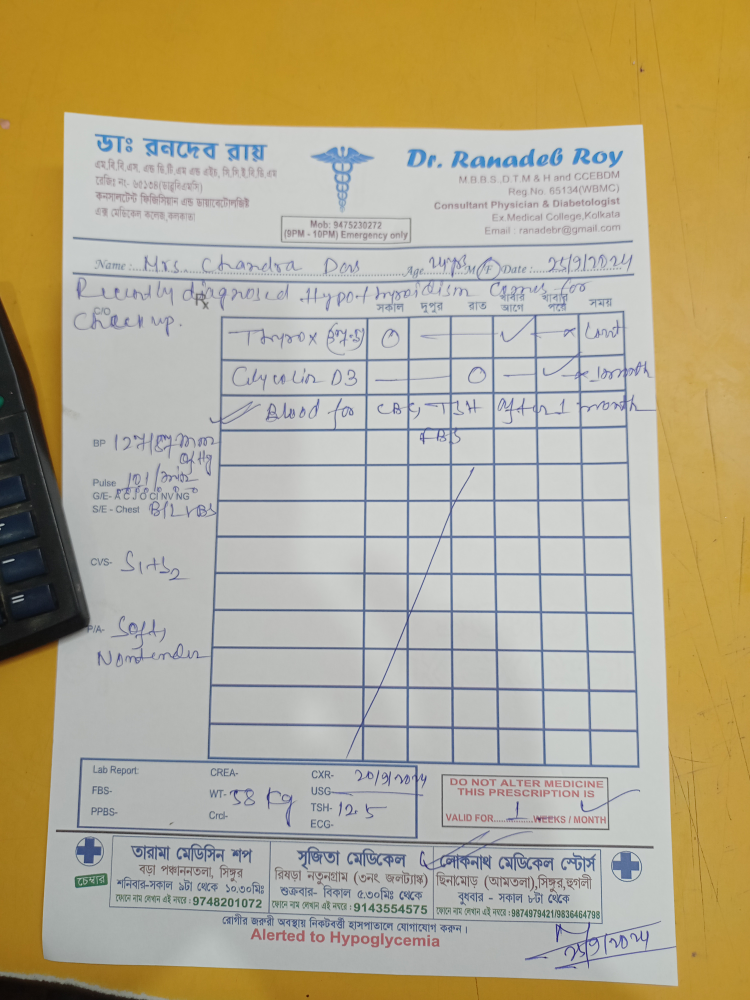 ডাঃ রনদেব রায়
এম.বি.বি.এস. এন্ড ডি.টি.এম এন্ড এইচ, সি.সি.ই.বি.ডি.এম
রেজিঃ নং- ৬৫১৩৪(ডাব্লুবিএমসি)
কনসালটেন্ট ফিজিসিয়ান এন্ড ডায়াবেটোলজিষ্ট
এক্স মেডিকেল কলেজ, কলকাতা
Mob: 9475230272
(9PM - 10PM) Emergency only
Dr. Ranadeb Roy
M.B.B.S..D.T.M & H and CCEBDM
Reg.No. 65134(WBMC)
Consultant Physician & Diabetologist
Ex.Medical College,Kolkata
Email : ranadebr@gmail.com
Name: Mrs. Chandra Das Age 24yrs M/F Date : 25/9/2024
Recently diagnosed Hypothyroidism Comes for
C/O Check up.
Rx
সকাল দুপুর রাত খাবার আগে খাবার পরে সময়
Thyrox Cont
D3 1 month
Blood for CBC, TSH after 1 month
FBS
BP 127/87 mm of Hg
Pulse 101/min
G/E- A C J O Cl NV NG
S/E - Chest B/L VBS
CVS- S1+S2
P/A- Soft,
Nontender
Lab Report: CREA- CXR- 20/9/2024
FBS- WT- 58 Kg USG
PPBS- Crcl- TSH- 12.5
ECG-
DO NOT ALTER MEDICINE
THIS PRESCRIPTION IS
VALID FOR 1 WEEKS / MONTH
চেম্বার
তারামা মেডিসিন শপ
বড়া পঞ্চাননতলা, সিঙ্গুর
শনিবার-সকাল ৯টা থেকে ১০.৩০মিঃ
ফোনে নাম লেখান এই নম্বরে : 9748201072
সৃজিতা মেডিকেল
রিষড়া নতুনগ্রাম (৩নং জলট্যাঙ্ক)
শুক্রবার- বিকাল ৫.৩০মিঃ থেকে
ফোনে নাম লেখান এই নম্বরে : 9143554575
লোকনাথ মেডিকেল স্টোর্স
ছিনামোড় (আমতলা),সিঙ্গুর,হুগলী
বুধবার - সকাল ৮টা থেকে
ফোনে নাম লেখান এই নম্বরে : 9874979421/9836464798
রোগীর জরুরী অবস্থায় নিকটবর্তী হাসপাতালে যোগাযোগ করুন।
Alerted to Hypoglycemia
25/9/2024